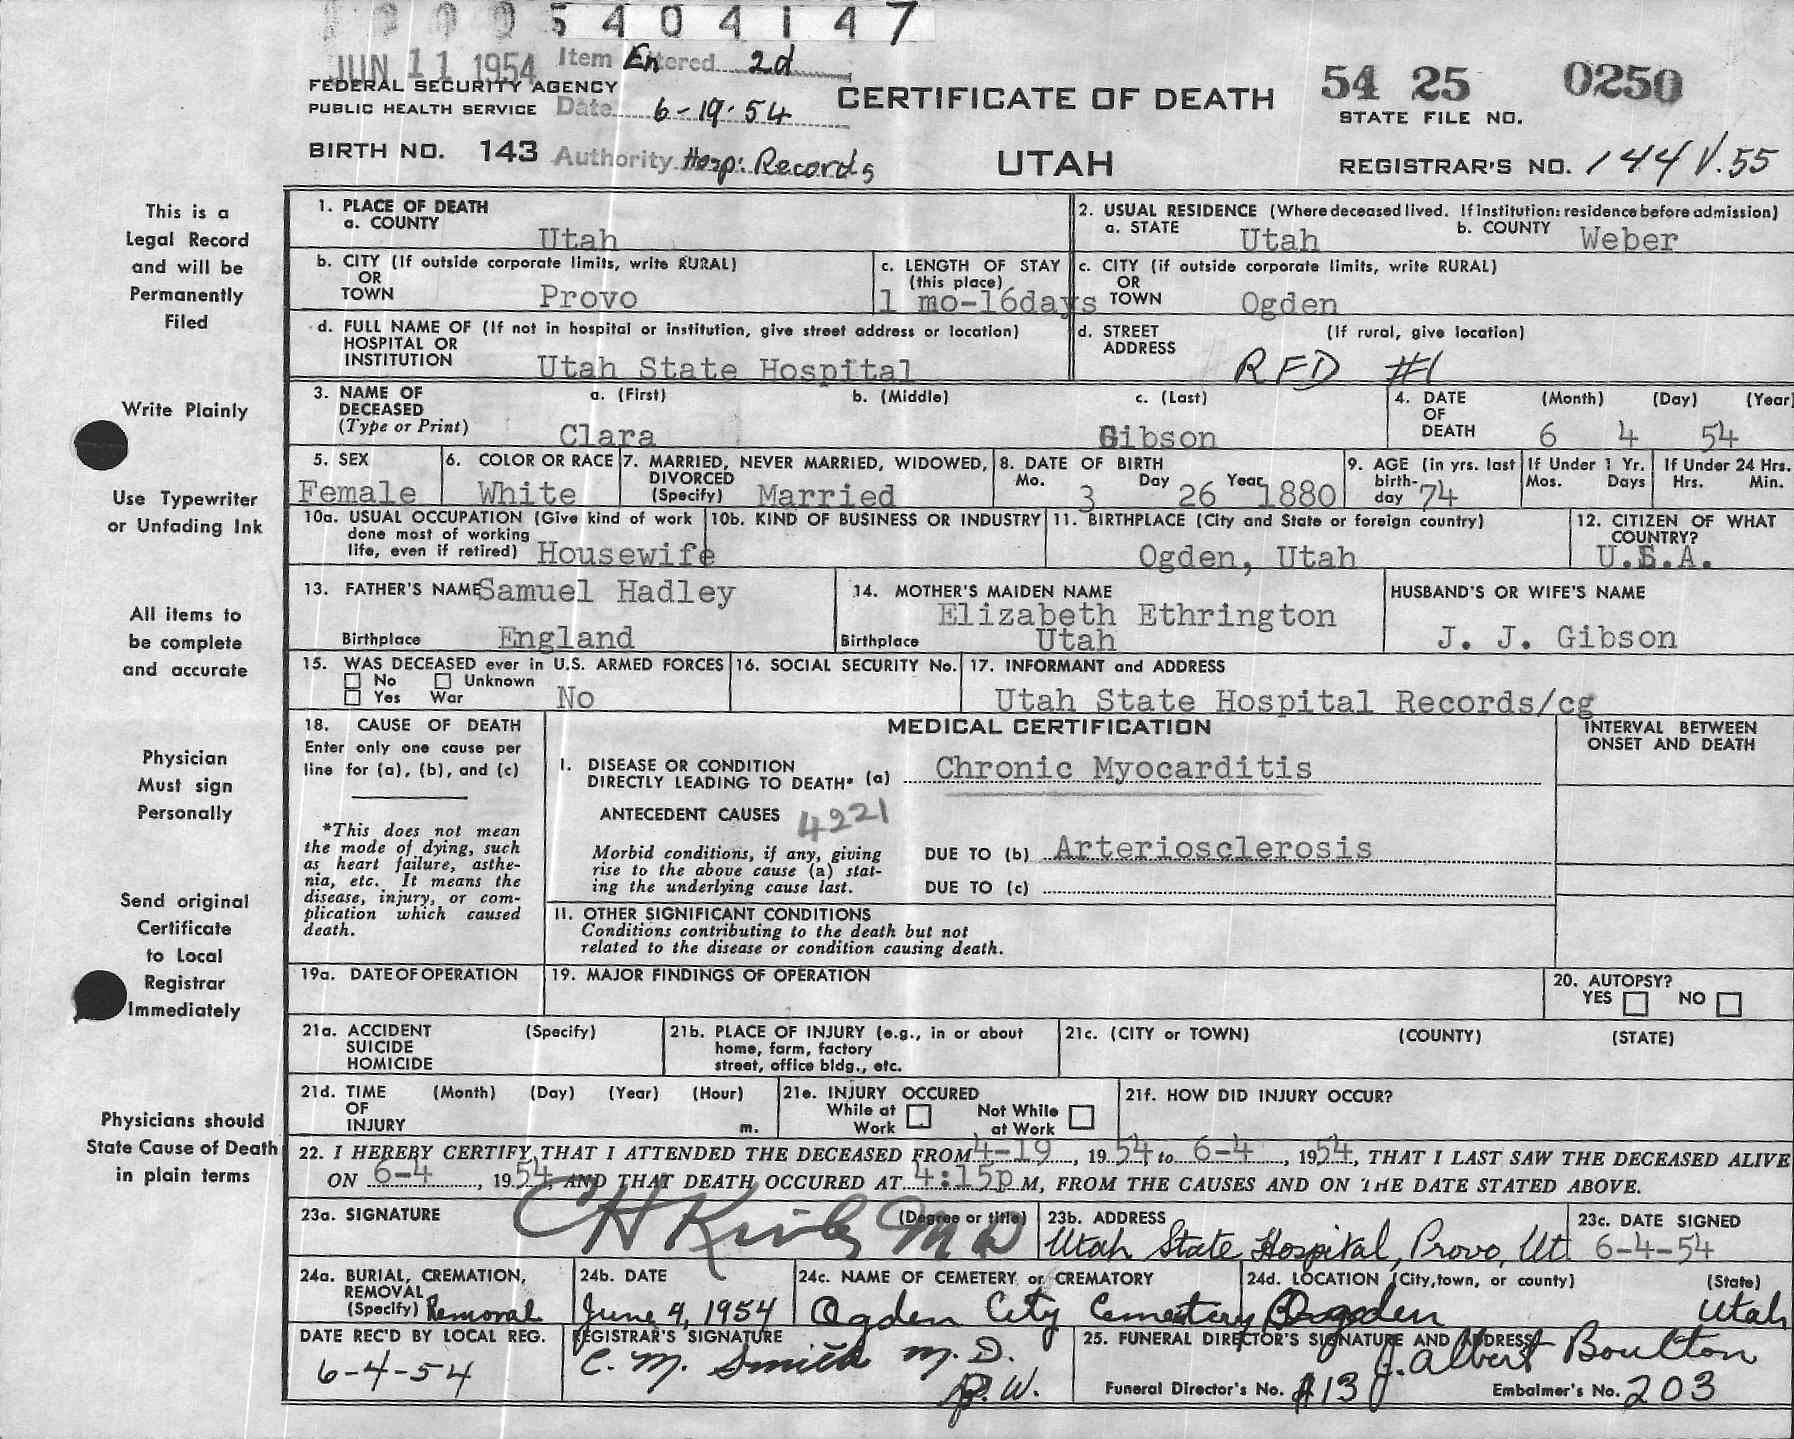 5 4 0 4 1 4 7
JUN 11 1954 Item Entered 2d
FEDERAL SECURITY AGENCY
PUBLIC HEALTH SERVICE Date 6-19-54
CERTIFICATE OF DEATH
54 25 0250
STATE FILE NO.
BIRTH NO. 143 Authority Hosp: Records
UTAH
REGISTRAR'S NO. 144 V.55
This is a
Legal Record
and will be
Permanently
Filed
Write Plainly
Use Typewriter
or Unfading Ink
All items to
be complete
and accurate
Physician
Must sign
Personally
Send original
Certificate
to Local
Registrar
Immediately
Physicians should
State Cause of Death
in plain terms
1. PLACE OF DEATH
a. COUNTY Utah
2. USUAL RESIDENCE (Where deceased lived. If institution: residence before admission)
a. STATE Utah b. COUNTY Weber
b. CITY (If outside corporate limits, write RURAL)
OR
TOWN Provo
c. LENGTH OF STAY
(this place)
1 mo-16days
c. CITY (if outside corporate limits, write RURAL)
OR
TOWN Ogden
d. FULL NAME OF (If not in hospital or institution, give street address or location)
HOSPITAL OR
INSTITUTION Utah State Hospital
d. STREET (If rural, give location)
ADDRESS RFD #1
3. NAME OF a. (First) b. (Middle) c. (Last)
DECEASED
(Type or Print) Clara Gibson
4. DATE (Month) (Day) (Year)
OF
DEATH 6 4 54
5. SEX
Female
6. COLOR OR RACE
White
7. MARRIED, NEVER MARRIED, WIDOWED,
DIVORCED
(Specify) Married
8. DATE OF BIRTH
Mo. 3 Day 26 Year 1880
9. AGE (in yrs. last
birth-
day 74
If Under 1 Yr.
Mos. Days
If Under 24 Hrs.
Hrs. Min.
10a. USUAL OCCUPATION (Give kind of work
done most of working
life, even if retired) Housewife
10b. KIND OF BUSINESS OR INDUSTRY
11. BIRTHPLACE (City and State or foreign country)
Ogden, Utah
12. CITIZEN OF WHAT
COUNTRY?
U.S.A.
13. FATHER'S NAME Samuel Hadley
Birthplace England
14. MOTHER'S MAIDEN NAME
Elizabeth Ethrington
Birthplace Utah
HUSBAND'S OR WIFE'S NAME
J. J. Gibson
15. WAS DECEASED ever in U.S. ARMED FORCES
No Unknown
Yes War No
16. SOCIAL SECURITY No.
17. INFORMANT and ADDRESS
Utah State Hospital Records/cg
18. CAUSE OF DEATH
Enter only one cause per
line for (a), (b), and (c)
*This does not mean
the mode of dying, such
as heart failure, asthe-
nia, etc. It means the
disease, injury, or com-
plication which caused
death.
MEDICAL CERTIFICATION
INTERVAL BETWEEN
ONSET AND DEATH
I. DISEASE OR CONDITION
DIRECTLY LEADING TO DEATH* (a) Chronic Myocarditis
ANTECEDENT CAUSES 4221
Morbid conditions, if any, giving
rise to the above cause (a) stat-
ing the underlying cause last.
DUE TO (b) Arteriosclerosis
DUE TO (c)
II. OTHER SIGNIFICANT CONDITIONS
Conditions contributing to the death but not
related to the disease or condition causing death.
19a. DATE OF OPERATION
19. MAJOR FINDINGS OF OPERATION
20. AUTOPSY?
YES NO
21a. ACCIDENT (Specify)
SUICIDE
HOMICIDE
21b. PLACE OF INJURY (e.g., in or about
home, farm, factory
street, office bldg., etc.
21c. (CITY or TOWN) (COUNTY) (STATE)
21d. TIME (Month) (Day) (Year) (Hour)
OF
INJURY m.
21e. INJURY OCCURED
While at Work
Not While at Work
21f. HOW DID INJURY OCCUR?
22. I HEREBY CERTIFY THAT I ATTENDED THE DECEASED FROM 4-19, 1954 to 6-4, 1954, THAT I LAST SAW THE DECEASED ALIVE
ON 6-4, 1954, AND THAT DEATH OCCURED AT 4:15p M, FROM THE CAUSES AND ON THE DATE STATED ABOVE.
23a. SIGNATURE (Degree or title)
MD
23b. ADDRESS
Utah State Hospital, Provo, Ut.
23c. DATE SIGNED
6-4-54
24a. BURIAL, CREMATION,
REMOVAL
(Specify) Removal
24b. DATE
June 4, 1954
24c. NAME OF CEMETERY or CREMATORY
Ogden City Cemetery
24d. LOCATION (City, town, or county) (State)
Ogden Utah
DATE REC'D BY LOCAL REG.
6-4-54
REGISTRAR'S SIGNATURE
C. M. Smith M. D.
25. FUNERAL DIRECTOR'S SIGNATURE AND ADDRESS
J. Albert Boulton
Funeral Director's No. 113 Embalmer's No. 203